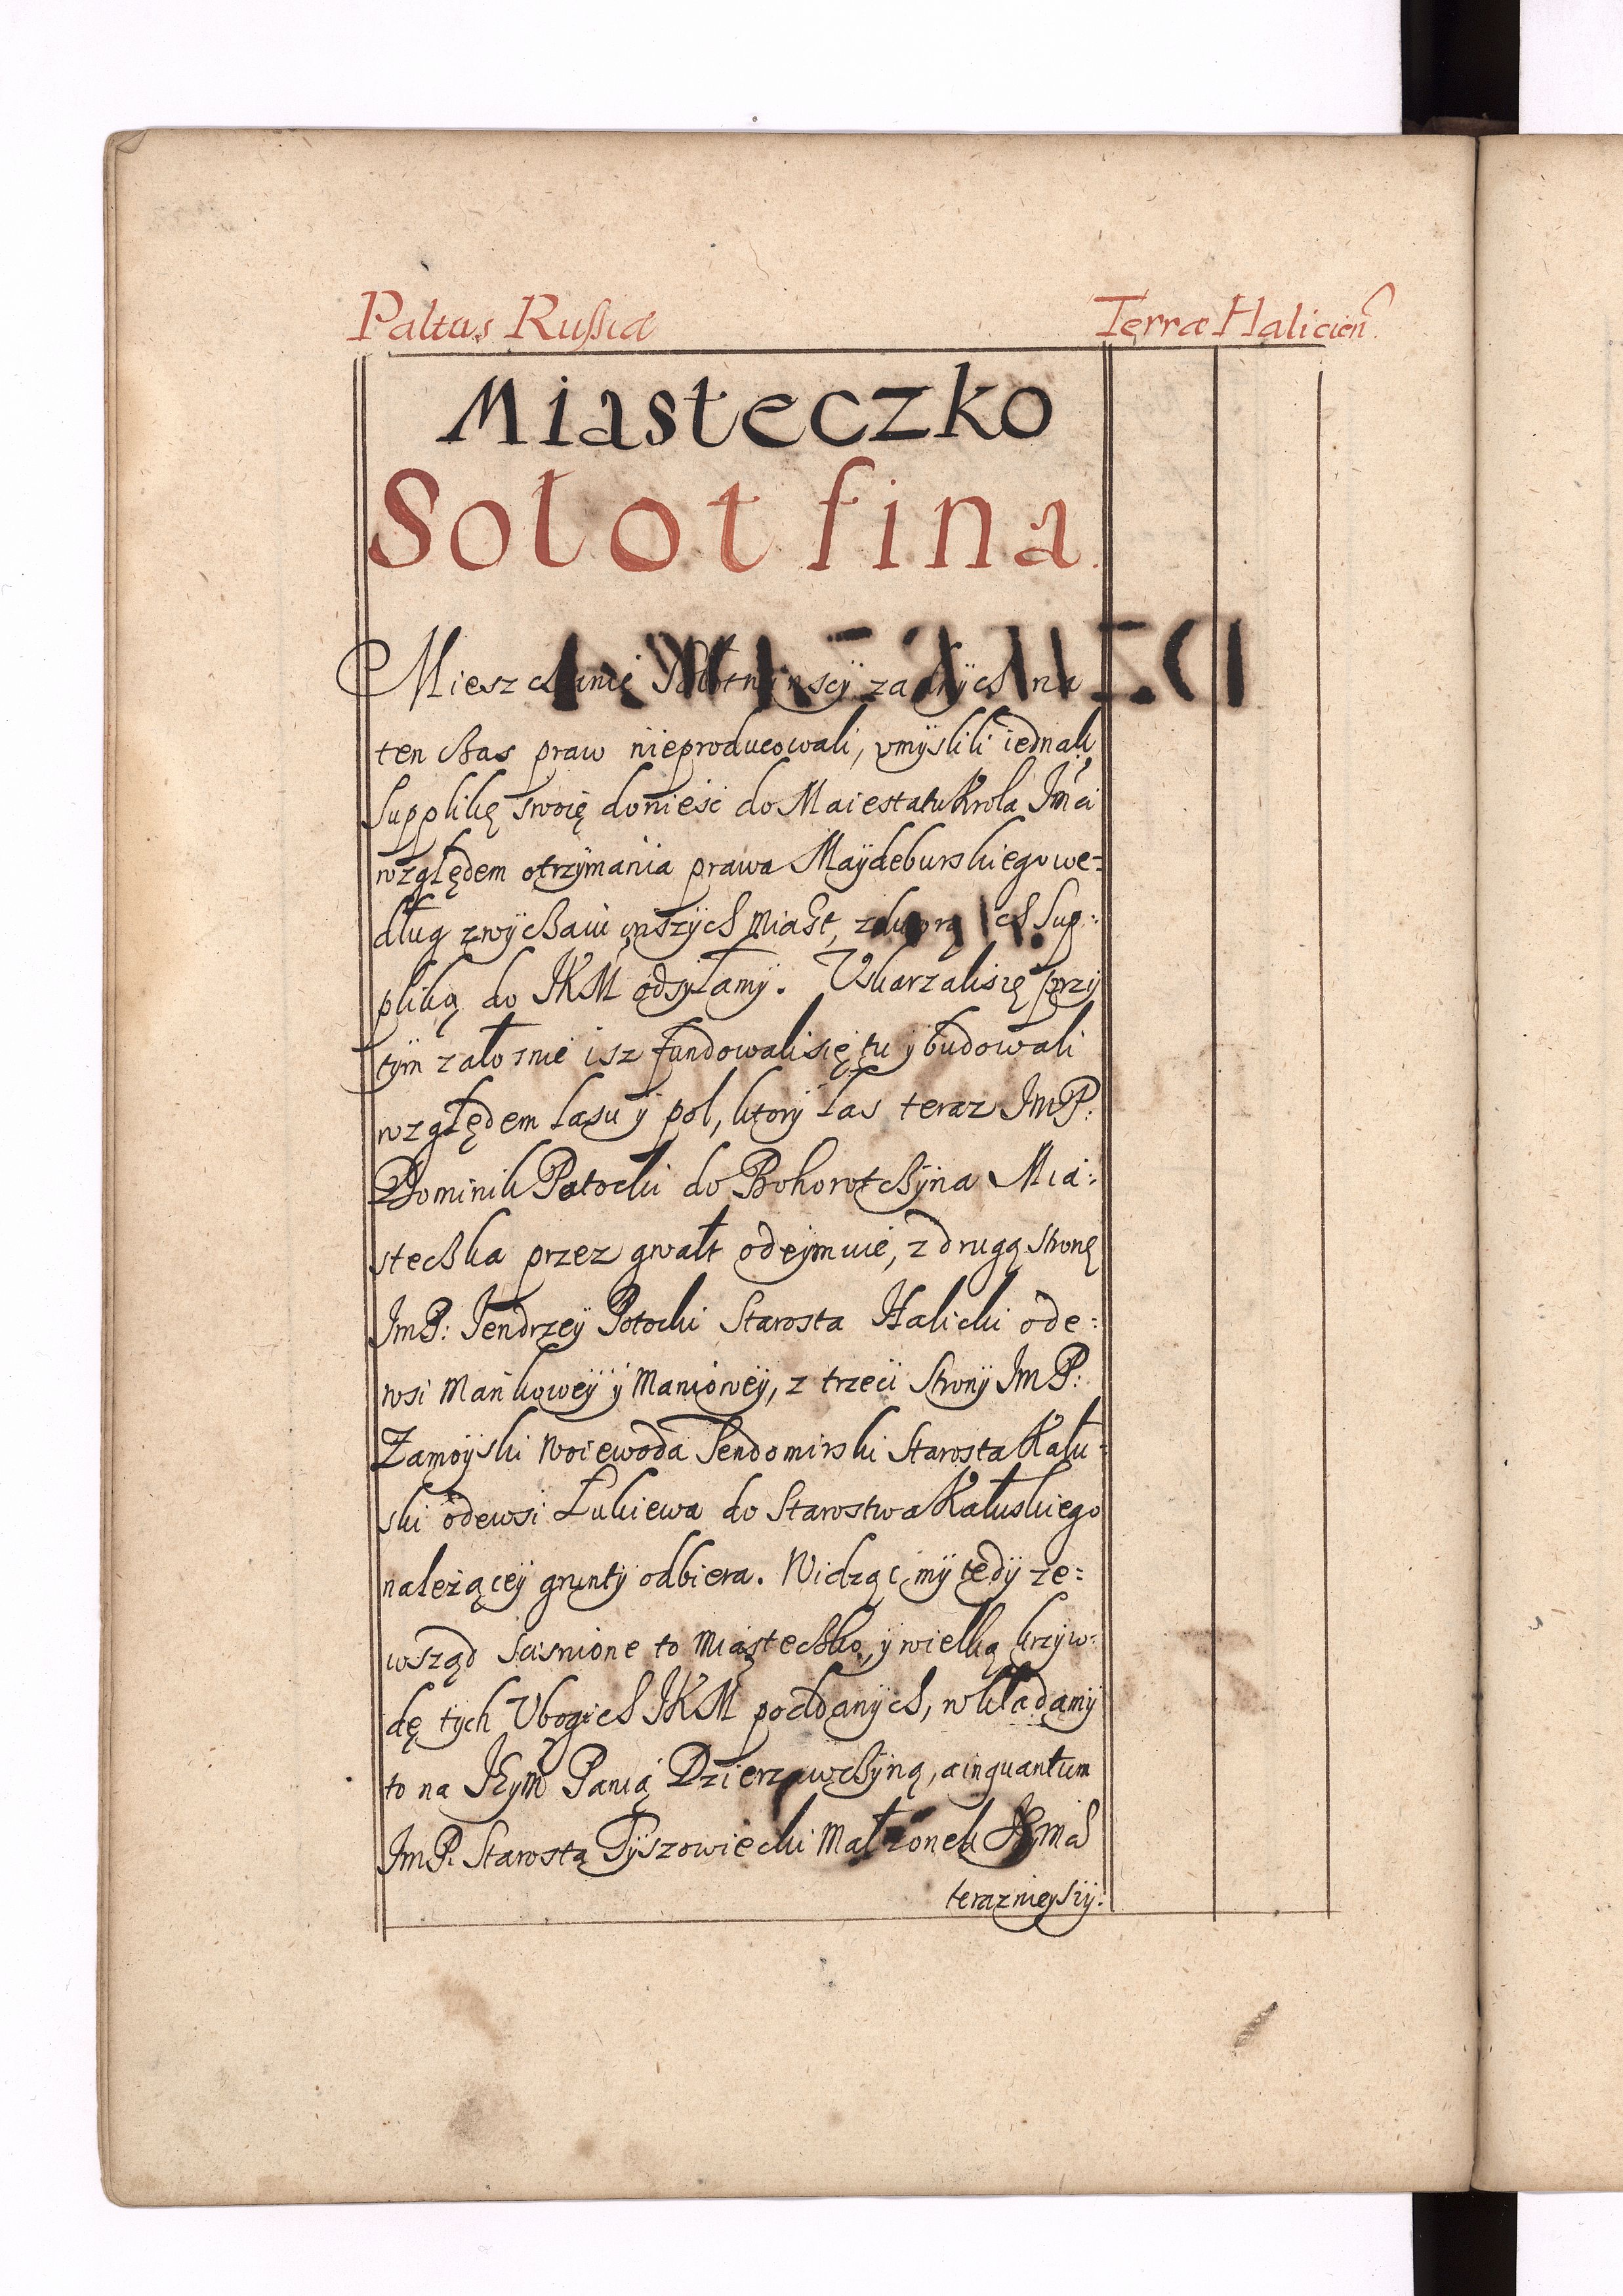 Paltus Russiæ Terræ Halicien.
Miasteczko
Sołotfina
Mieszczanie Sołotwinscÿ zadnÿch na
ten czas praw nieproducowali, umÿslili iednak
Supplikę swoię doniesc do Maiestatu Krola Jmci
względem otrzÿmania prawa Maÿdeburskiego we=
dług zwÿczaiu inszÿch miast, z ktorą ich Sup=
pliką do JKM odsÿłamÿ. Uskarzali się przÿ
tÿm załosnie isz fundowali się tu ÿ budowali
względem lasu ÿ pol, ktorÿ las teraz JmP:
Dominik Potocki do Bohorotczÿna Mia=
steczka przez gwałt odeÿmuie, z drugą stronę
JmP: Jendrzeÿ Potocki Starosta Halicki ode=
wsi Mańkoweÿ ÿ Manioweÿ, z trzecii Stronÿ JmP:
Zamoÿski Woiewoda Sendomirski Starosta Kału=
ski odewsi Łukiewa do Starostwa Kałuskiego
należąceÿ gruntÿ odbiera. Widząc mÿ tedÿ ze=
wsząd scisnione to Miasteczko, ÿ wielką krzÿw=
dę tych Ubogich JKM poddanÿch, wkładamÿ
to na JeÿM Panią Dzierzawczÿną, a inquantum
JmP. Starosta Tÿszowiecki Małzonek Jeÿmci
teraznieÿsiÿ.